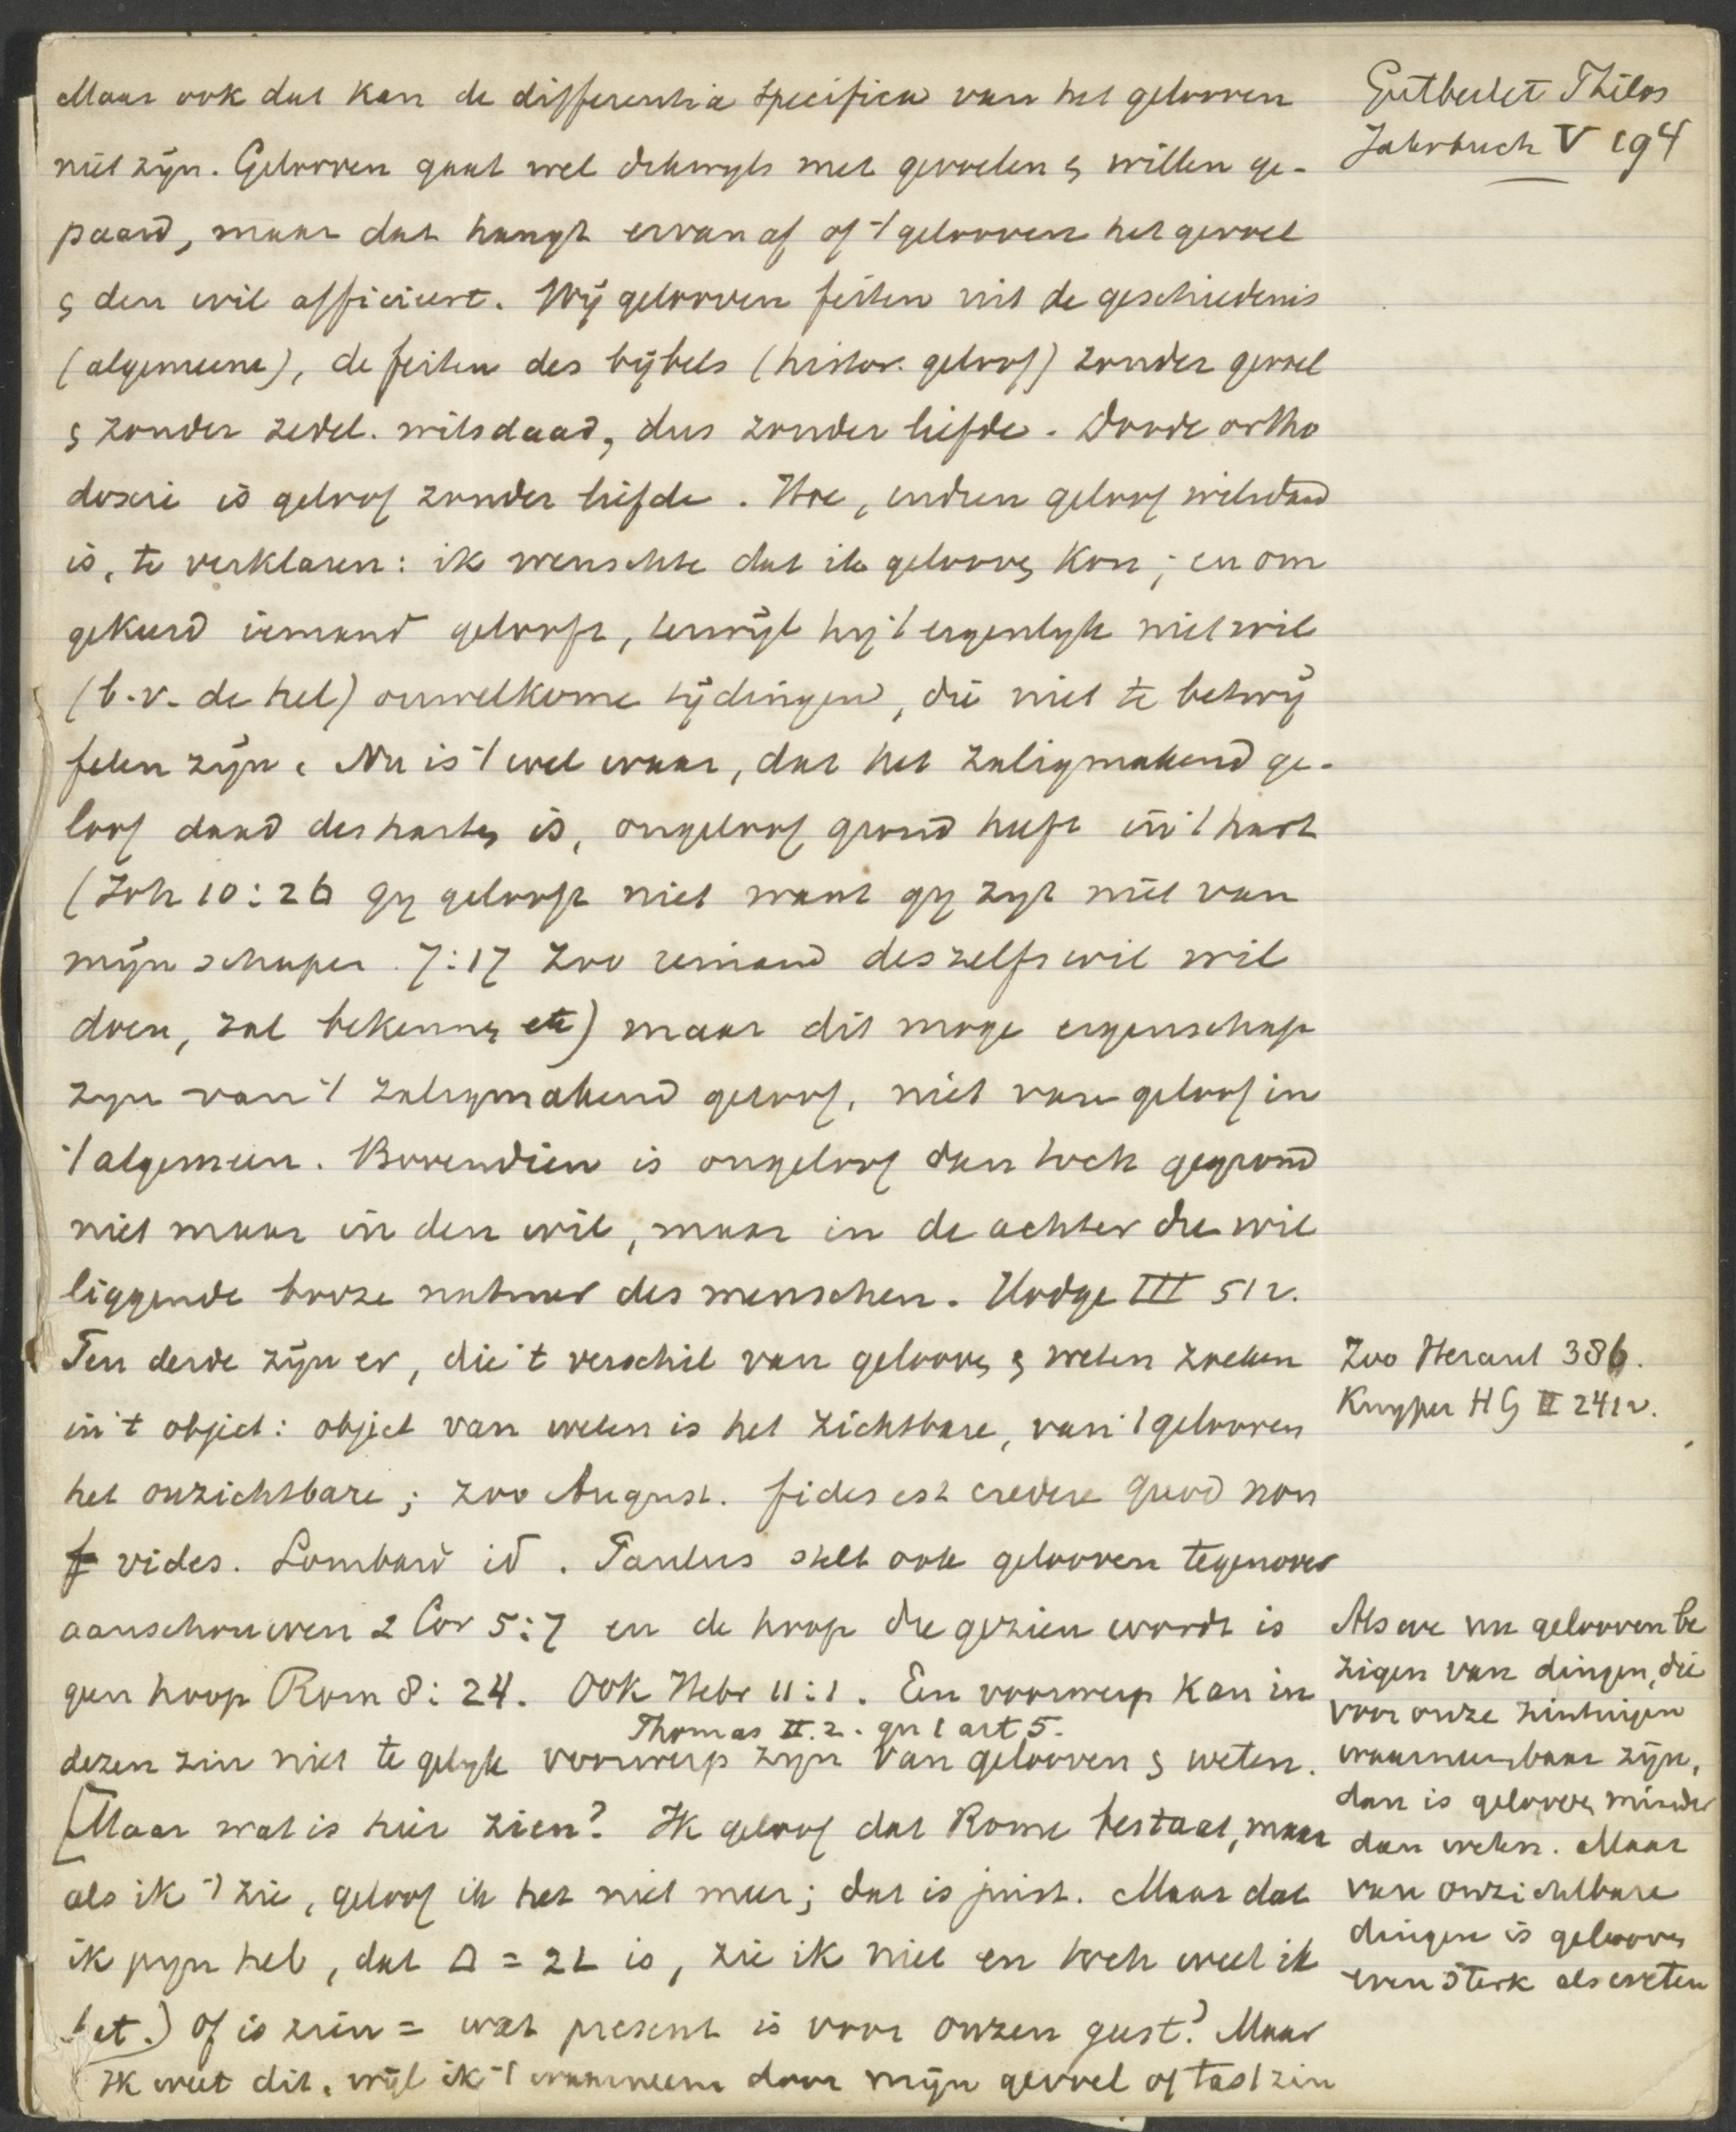 Maar ook dat kan de differentia specifica van het gelooven
niet zijn. Gelooven gaat wel dikwyls met gevoelen & willen ge-
paard, maar dat hangt ervan af of 't gelooven het gevoel
& den wil afficieert. Wij gelooven feiten uit de geschiedenis
(algemeene), de feiten des bijbels (histor. geloof) zonder gevoel
& zonder zedel. wilsdaad, dus zonder liefde. Doode ortho
doxie is geloof zonder liefde. Hoe, indien geloof wilsdaad
is, te verklaren: ik wenschte dat ik geloov kon; en om
gekeerd iemand gelooft, terwijl hij 't eigenlyk niet wil
(b.v. de hel) onwelkome tijdingen, die niet te betwij
felen zijn. Nu is 't wel waar, dat het zaligmakend ge-
loof daad des harten is, ongeloof grond heeft in 't hart
(Joh 10:26 gy gelooft niet want gy zyt niet van
mijn schapen. 7:17 Zoo iemand deszelfs wil wil
doen, zal bekennen etc) maar dit moge eigenschap
zyn van 't zaligmakend geloof, niet van geloof in
't algemeen. Bovendien is ongeloof dan toch gegrond
niet maar in den wil, maar in de achter die wil
liggende booze natuur des menschen. Hodge III 51 v.
Ten derde zijn er, die 't verschil van gelooven & weten zoeken
in 't object: object van weten is het zichtbare, van 't gelooven
het onzichtbare; zoo August. fides est credere quod non
vides. Lombard id. Paulus stelt ook gelooven tegenover
aanschouwen 2 Cor 5:7 en de hoop die gezien wordt is
geen hoop Rom 8:24. Ook Hebr 11:1. Een voorwerp kan in
Thomas II.2. qu 1 art 5.
dezen zin niet te gelyk voorwerp zijn van gelooven & weten.
[Maar wat is hier zien? Ik geloof dat Rome bestaat, maar
als ik 't zie, geloof ik het niet meer; dat is juist. Maar dat
ik pyn heb, dat Δ = 2L is, zie ik niet en toch weet ik
het.) Of is zien = wat present is voor onzen geest? Maar
Ik weet dit, wijl ik 't waarneem door mijn gevoel of tastzin
Gutberlet Philos
Jahrbuch V 194
Zoo Heraut 386.
Kuyper HG II 241 v.
Als we nu gelooven be
zigen van dingen, die
voor onze zintuigen
waarneembaar zijn,
dan is gelooven minder
dan weten. Maar
van onzichtbare
dingen is gelooven
even sterk als weten